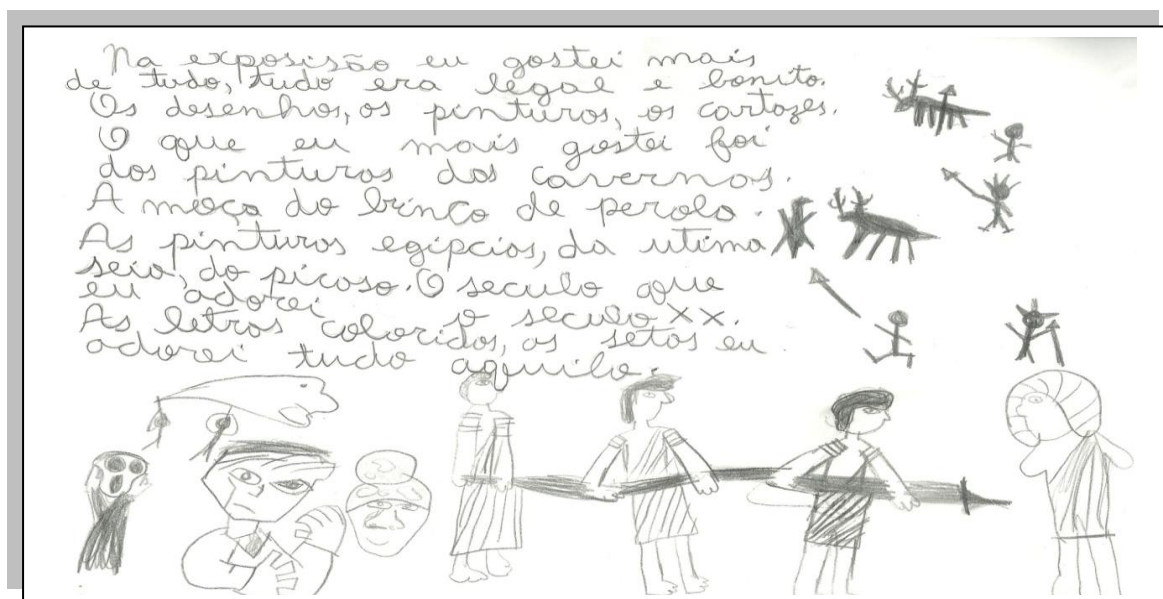 Na exposisão eu gostei mais
de tudo, tudo era legal e bonito.
Os desenhos, os pinturas, os cartazes.
O que eu mais gostei foi
das pinturas das cavernas.
A moça do brinco de perola.
As pinturas egípcias, da utima
seia, do picaso. O seculo que
eu adorei o seculo XX.
As letras coloridas, as setas eu
adorei tudo aquilo.